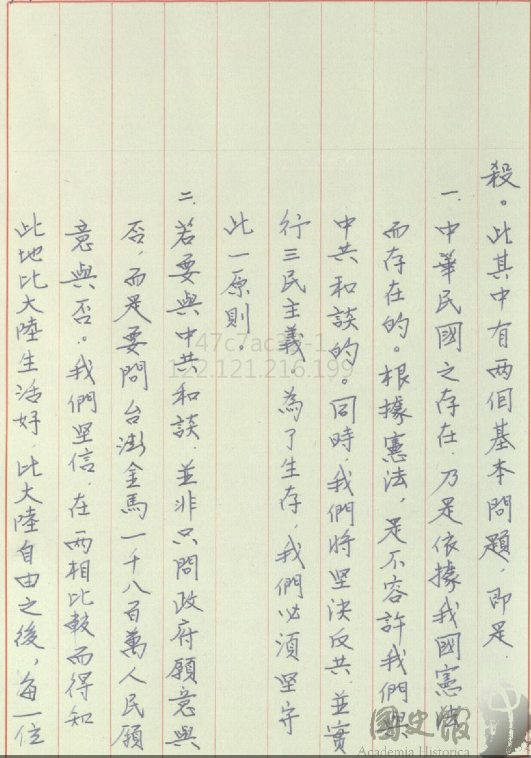 殺。此其中有两個基本問題，即是．
一、中華民國之存在，乃是依據我國憲法
而存在的。根據憲法，是不容許我們與
中共和談的。同時，我們將坚決反共，並實
行三民主義，為了生存，我們必須坚守
此一原則。
二、若要與中共和談，並非只問政府願意與
否，而是要問台澎金馬一千八百萬人民願
意與否。我們坚信，在两相比較而得知
此地比大陸生活好，比大陸自由之後，每一位
47c7ac33-1
122.121.216.199
國史館
Academia Historica